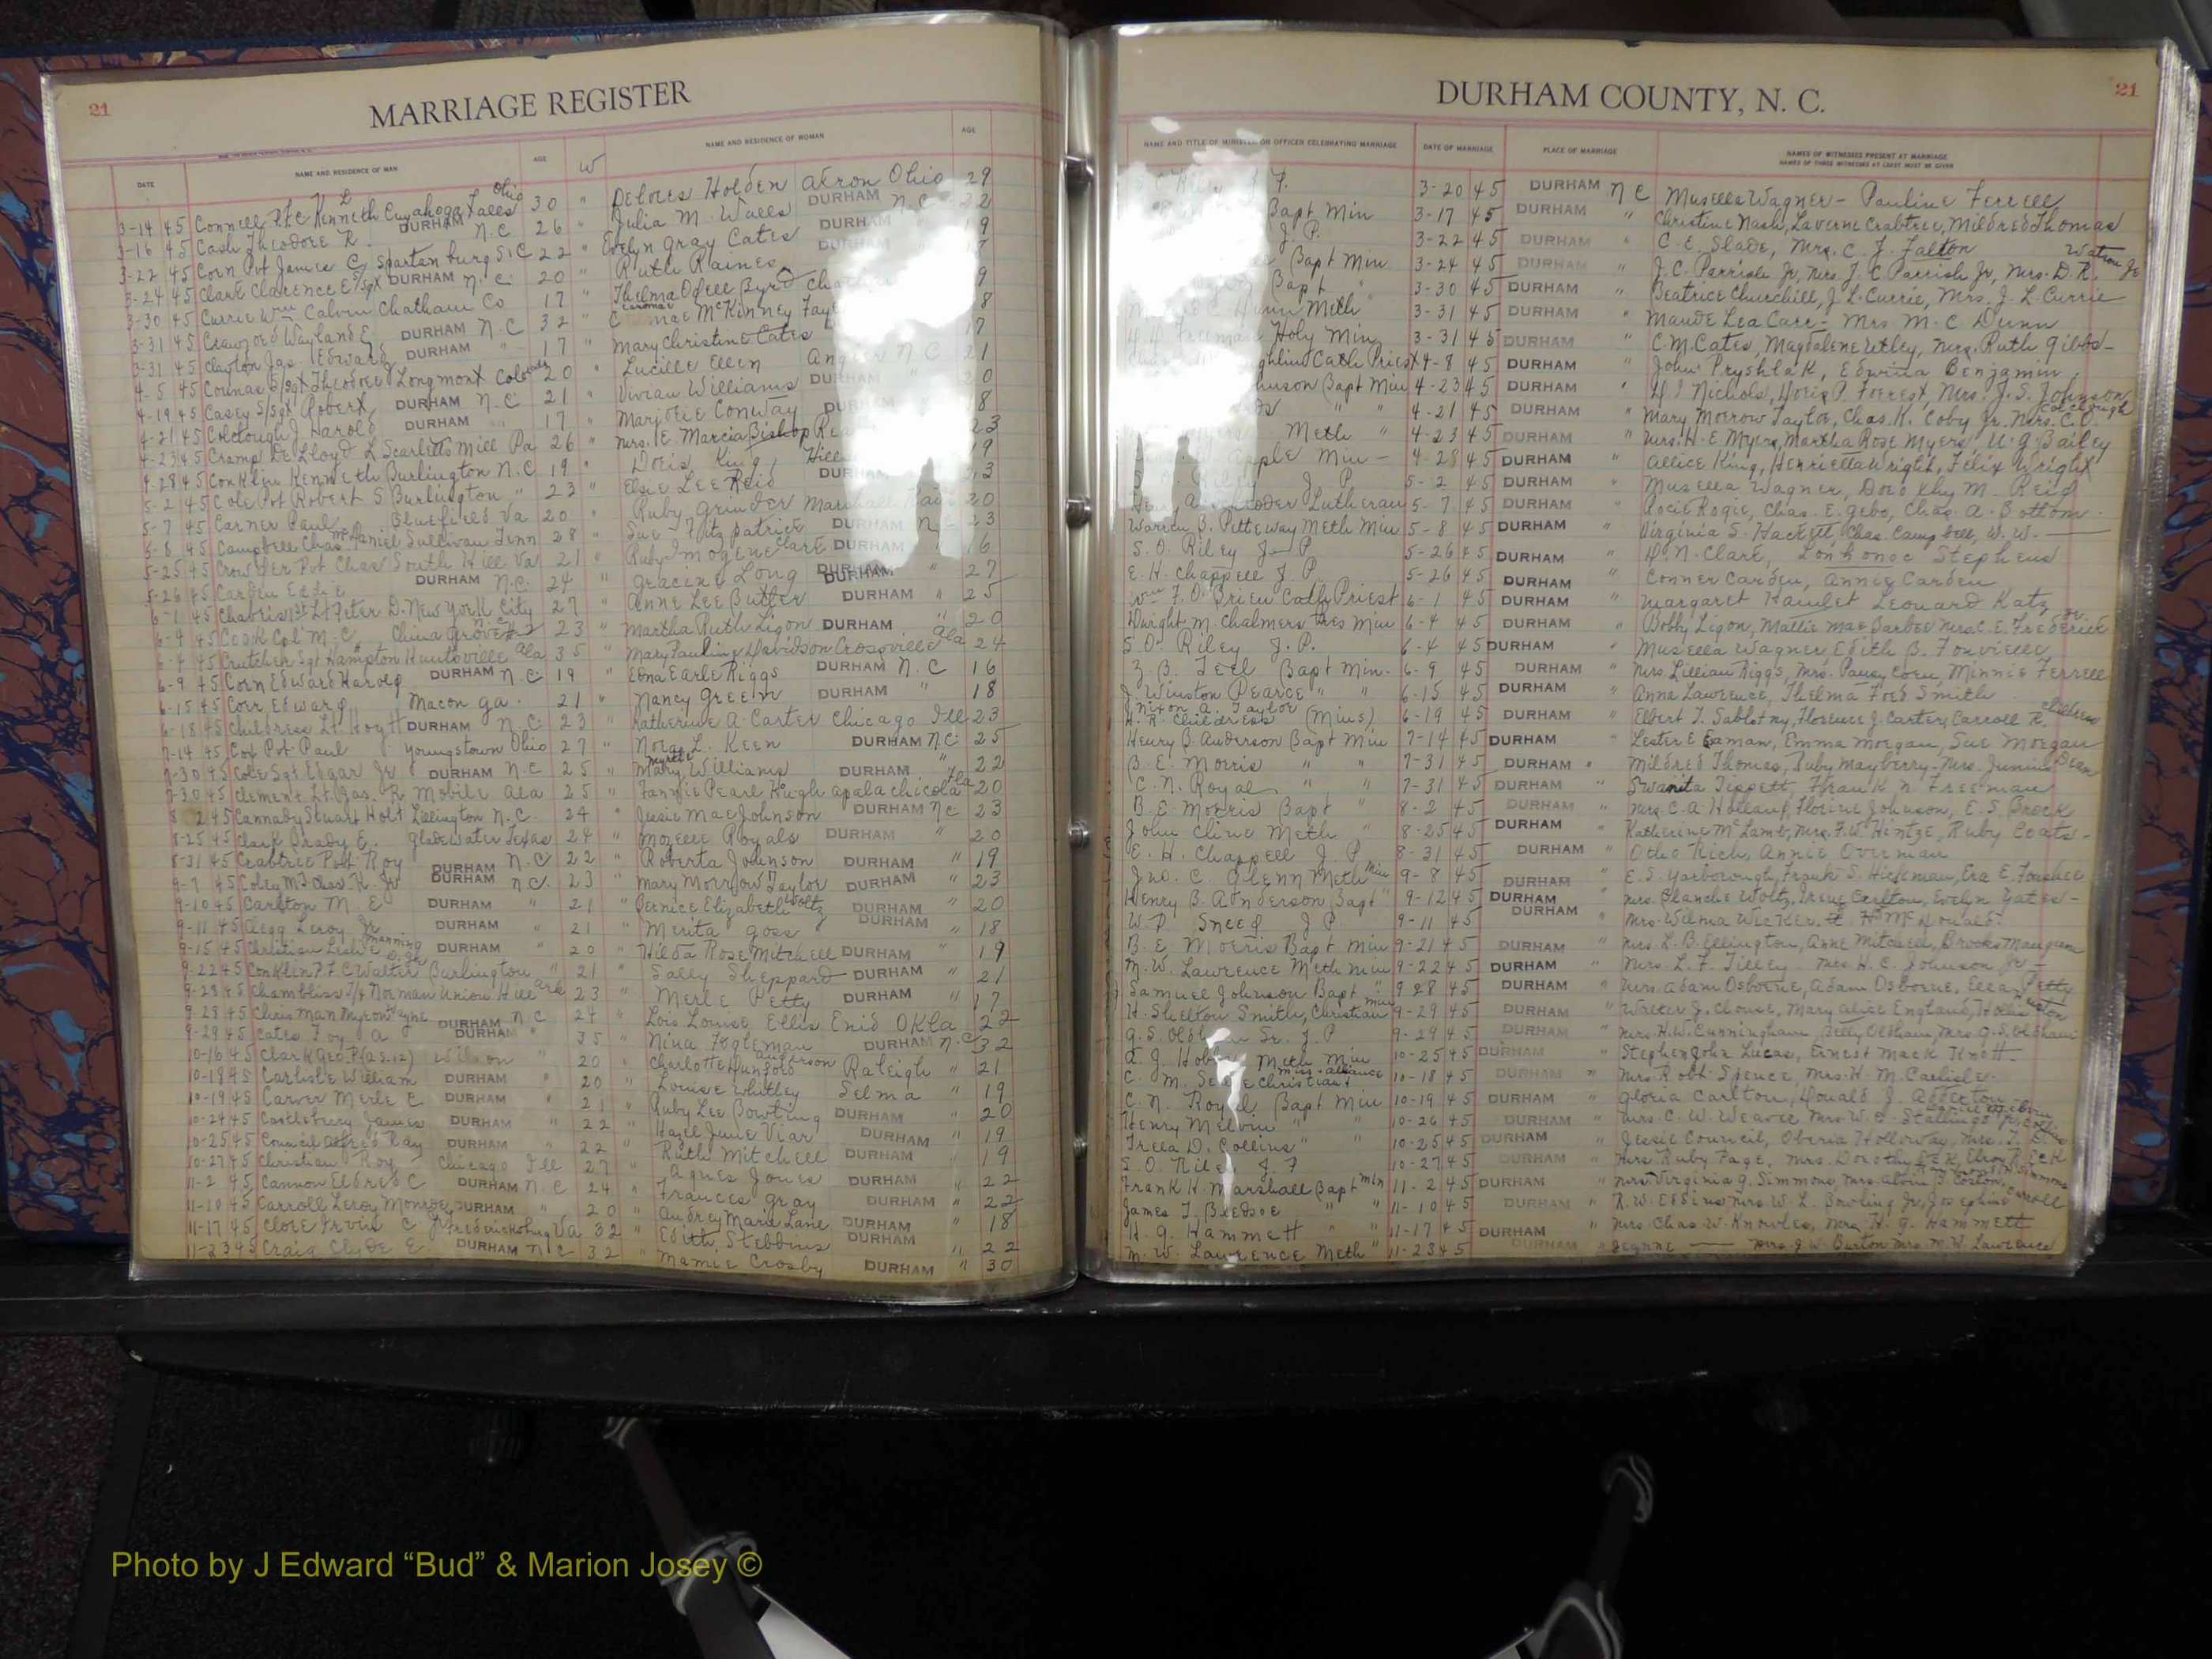 21
MARRIAGE REGISTER
DATE NAME AND RESIDENCE OF MAN AGE W NAME AND RESIDENCE OF WOMAN AGE
3-14 45 Connell P.F.C Kenneth L Cuyahoga Falls Ohio 30 " Delores Holden Akron Ohio 29
3-16 45 Cash Theodore R. DURHAM N.C 26 " Julia M. Walls DURHAM N.C 22
3-22 45 Corn Pvt James C Spartanburg S.C 22 " Evelyn Gray Cates DURHAM 19
3-24 45 Clark Clarence E S/Sgt DURHAM N.C. 20 " Ruth Raines DURHAM
3-30 45 Currie Wm Calvin Chatham Co 17 " Thelma Odell Byrd
3-31 45 Crawford Wayland E. DURHAM N.C 32 " Mae McKinney
3-31 45 Clayton Jas. Edward DURHAM " 17 " Mary Christine Cates 17
4-5 45 S/Sgt Theodore J Longmont Colorado 20 " Lucille Ellen Angier N.C 21
4-19 45 Casey S/Sgt Robert DURHAM N.C 21 " Vivian Williams DURHAM 20
4-21 45 Colclough J Harold DURHAM " 17 " Marjorie Conway DURHAM 18
4-23 45 Cramp De Lloyd L Scarletts Mill Pa 26 " Mrs. E. Marcia Bishop 23
4-28 45 Conklin Kenneth Burlington N.C 19 " Doris King 19
5-2 45 Cole Pvt Robert S Burlington " 23 " Elsie Lee Reid DURHAM
5-7 45 Carner Paul Bluefield Va 20 " Ruby Grinder Marshall 20
5-8 45 Campbell Chas. McDaniel Sullivan Tenn 28 " Sue Fitzpatrick DURHAM N.C 23
5-25 45 Crowder Pvt Chas South Hill Va 21 " Ruby Imogene Clark DURHAM 16
5-26 45 Carden Eddie DURHAM N.C. 24 " Gracine Long DURHAM " 27
6-1 45 Chabris 1st Lt Peter D. New York City 27 " Anne Lee Butler DURHAM " 25
6-4 45 Cook Cpl M.C. China Grove N.C 23 " Martha Ruth Ligon DURHAM " 20
6-4 45 Crutcher Sgt Hampton Huntsville Ala 35 " Mary Pauline Davidson Crossville Ala 24
6-9 45 Corn Edward Harold DURHAM N.C 19 " Edna Earle Riggs DURHAM N.C 16
6-15 45 Corr Edward Macon Ga. 21 " Nancy Green DURHAM " 18
6-18 45 Childress Lt. Hoyt H DURHAM N.C. 23 " Katherine A Carter Chicago Ill 23
7-14 45 Cox Pvt Paul Youngstown Ohio 27 " Nora L. Keen DURHAM N.C. 25
7-30 45 Cole Sgt Edgar Jr DURHAM N.C 25 " Mary Myrtle Williams DURHAM " 22
7-30 45 Clement Lt. Jas. R Mobile Ala 25 " Fannie Pearl Kirgh Apalachicola Fla 20
8 2 45 Cannady Stuart Holt Lillington N.C. 24 " Jessie Mae Johnson DURHAM N.C 23
8-25 45 Clark Brady E. Gladewater Texas 24 " Mozelle Royals DURHAM " 20
8-31 45 Crabtree Pvt Roy DURHAM N.C 22 " Roberta Johnson DURHAM " 19
9-7 45 Coley Chas. K. Jr DURHAM N.C. 23 " Mary Morrow Taylor DURHAM " 23
9-10 45 Carlton M. E DURHAM " 21 " Bernice Elizabeth Woltz DURHAM " 20
9-11 45 Clegg Leroy Jr DURHAM " 21 " Merita Goss DURHAM " 18
9-15 45 Christian Leslie Manning DURHAM " 20 " Hilda Rose Mitchell DURHAM " 19
9-22 45 Conklin P.F.C Walter Burlington " 21 " Sally Sheppard DURHAM " 21
9-28 45 Chambliss Norman Union Hill Ark 23 " Merle Petty DURHAM " 17
9-28 45 Chrisman Myron Wayne DURHAM N.C 24 " Lois Louise Ellis Enid Okla 22
9-29 45 Cates Foy A DURHAM " 35 " Nina Fogleman DURHAM N.C 32
10-16 45 Clark Geo. P. Wilson " 20 " Charlotte Anderson Dunford Raleigh " 21
10-18 45 Carlisle William DURHAM " 20 " Louise Whitley Selma " 19
10-19 45 Carver Merle C DURHAM " 21 " Ruby Lee Bowling DURHAM " 20
10-24 45 Castlebury James DURHAM " 22 " Hazel June Viar DURHAM " 19
10-25 45 Council Alfred Ray DURHAM " 22 " Ruth Mitchell DURHAM " 19
10-27 45 Christian Roy Chicago Ill 27 " Agnes Jones DURHAM " 22
11-2 45 Cannon Eldred C DURHAM N.C 24 " Frances Gray DURHAM " 22
11-10 45 Carroll Leroy Monroe DURHAM " 20 " Audrey Maria Lane DURHAM " 18
11-17 45 Clore Irvin C Jr Fredericksburg Va 32 " Edith Stebbins DURHAM " 22
11-23 45 Craig Clyde E. DURHAM N.C 32 " Mamie Crosby DURHAM " 30
DURHAM COUNTY, N. C.
21
NAME AND TITLE OF MINISTER OR OFFICER CELEBRATING MARRIAGE DATE OF MARRIAGE PLACE OF MARRIAGE NAMES OF WITNESSES PRESENT AT MARRIAGE
NAMES OF THREE WITNESSES AT LEAST MUST BE GIVEN
J. P. 3-20 45 DURHAM N C Musella Wagner - Pauline Ferrell
Bapt Min 3-17 45 DURHAM " Christine Nash, Laverne Crabtree, Mildred Thomas
J. P. 3-22 45 DURHAM " C. E. Slade, Mrs. C. J. Falton
Bapt Min 3-24 45 DURHAM J. C. Parrish Jr, Mrs. J. C. Parrish Jr, Mrs. D. R. Watson Jr
Bapt " 3-30 45 DURHAM " Beatrice Churchill, J. L. Currie, Mrs. J. L. Currie
Dunn Meth " 3-31 45 DURHAM " Maude Lea Carr - Mrs. M. C Dunn
H. H. Freeman Holy Min 3-31 45 DURHAM " C. M. Cates, Magdalene Utley, Mrs. Ruth Gibbs
Cath Priest 4-8 45 DURHAM " John Pryshlak, Edwina Benjamin
Johnson Bapt Min 4-23 45 DURHAM " H. I Nichols, Doris P. Forrest, Mrs. J. S. Johnson
" " 4-21 45 DURHAM " Mary Morrow Taylor, Chas. K. Coby Jr. Mrs. C. O. Colclough
Meth " 4-23 45 DURHAM " Mrs. H. E Myers, Martha Rose Myers, U. G. Bailey
Apple Min - 4-28 45 DURHAM " Allice King, Henrietta Wright, Felix Wright
S. O. Riley J. P 5-2 45 DURHAM " Musella Wagner, Dorothy M. Reid
Lutheran 5-7 45 DURHAM " Rocie Rogie, Chas. E. Gebo, Chas. A. Bottom
Warren B. Petteway Meth Min 5-8 45 DURHAM " Virginia S. Hackett, Chas. Campbell, W. W.
S. O. Riley J P 5-26 45 DURHAM " H. N. Clark, Lonhonoc Stephens
E. H. Chappell J. P. 5-26 45 DURHAM " Conner Carden, Annie Carden
Wm F. O'Brien Cath Priest 6-1 45 DURHAM " Margaret Hamlet Leonard Katz
Dwight M. Chalmers Pres Min 6-4 45 DURHAM " Bobby Ligon, Mattie Mae Barbee Mrs. C. E. Frederick
S. O. Riley J. P. 6-4 45 DURHAM " Musella Wagner, Edith B. Fonvielle
Z. B. Teel Bapt Min. 6-9 45 DURHAM " Mrs. Lillian Riggs, Mrs. Pansy Corn, Minnie Ferrell
J. Winston Pearce " " 6-15 45 DURHAM " Anne Lawrence, Thelma Ford Smith
J. Nixon A. Taylor
H. R. Childress (Mins) 6-19 45 DURHAM " Elbert T. Sablotny, Florence J. Carter, Carroll R. Childress
Henry B. Anderson Bapt Min 7-14 45 DURHAM " Lester E Eaman, Emma Morgan, Sue Morgan
B. E. Morris " " 7-31 45 DURHAM " Mildred Thomas, Ruby Mayberry, Mrs. Junius Dean
C. N. Royal " " 7-31 45 DURHAM " Swanita Tippett, Frank N. Freeman
B. E Morris Bapt " 8-2 45 DURHAM " Mrs. C. A. Holland, Florine Johnson, E. S Brock
John Cline Meth " 8-25 45 DURHAM " Katherine McLamb, Mrs. F. W. Hintze, Ruby Coats
E. H. Chappell J. P 8-31 45 DURHAM " Otho Rich, Annie Overman
Jno. C. Glenn Meth Min 9-8 45 DURHAM " E. S. Yarborough, Frank S. Hickman, Era E. Foushee
Henry B. Anderson Bapt " 9-12 45 DURHAM " Mrs. Blanche Woltz, Irene Carlton, Evelyn Yates
W. P. Sneed J P 9-11 45 DURHAM " Mrs. Wilma Wicker, H McDonald
B. E Morris Bapt Min 9-21 45 DURHAM " Mrs. L. B. Ellington, Anne Mitchell, Brooks Mangum
M. W. Lawrence Meth Min 9-22 45 DURHAM " Mrs. L. F. Tilley Mrs. H. C. Johnson Jr
Samuel Johnson Bapt Min 9 28 45 DURHAM " Mrs. Adam Osborne, Adam Osborne, Ella Petty
H. Shelton Smith, Christian 9-29 45 DURHAM " Walter J. Clouse, Mary Alice England, Hollis
G. S. Oldham Sr. J. P 9-29 45 DURHAM " Mrs. H. W. Cunningham, Billy Oldham, Mrs. G. S. Oldham
A. J. Meth Min 10-25 45 DURHAM " Stephen John Lucas, Ernest Mack Knott
C. M. Christian & Miss - Alliance 10-18 45 DURHAM " Mrs. Robt. Spence, Mrs. H. M. Carlisle
C. N. Royal Bapt Min 10-19 45 DURHAM " Gloria Carlton, Donald J. Adderton
Henry Melvin " " 10-26 45 DURHAM " Mrs. C. W. Weaver Mrs. W. E. Stallings Jr
Trela D. Collins " " 10-25 45 DURHAM " Jessie Council, Oberia Holloway, Mrs. T. D. Collins
S. O. Riley J. P 10-27 45 DURHAM " Mrs. Ruby Page, Mrs. Dorothy Eck, Elroy R. Eck
Frank H. Marshall Bapt Min 11-2 45 DURHAM " Mrs. Virginia G. Simmons, Mrs. Alvin B. Coston, Raymond H. Simmons
James T. Bledsoe " " 11-10 45 DURHAM " R. W. Eddins Mrs. W. L. Bowling Jr, Josephine Carroll
H. G. Hammett " " 11-17 45 DURHAM " Mrs. Chas. W. Knowles, Mrs. H. G. Hammett
M. W. Lawrence Meth " 11-23 45 DURHAM " Jeanne Mrs. J. W. Burton Mrs. M. W. Lawrence
Photo by J Edward “Bud” & Marion Josey ©